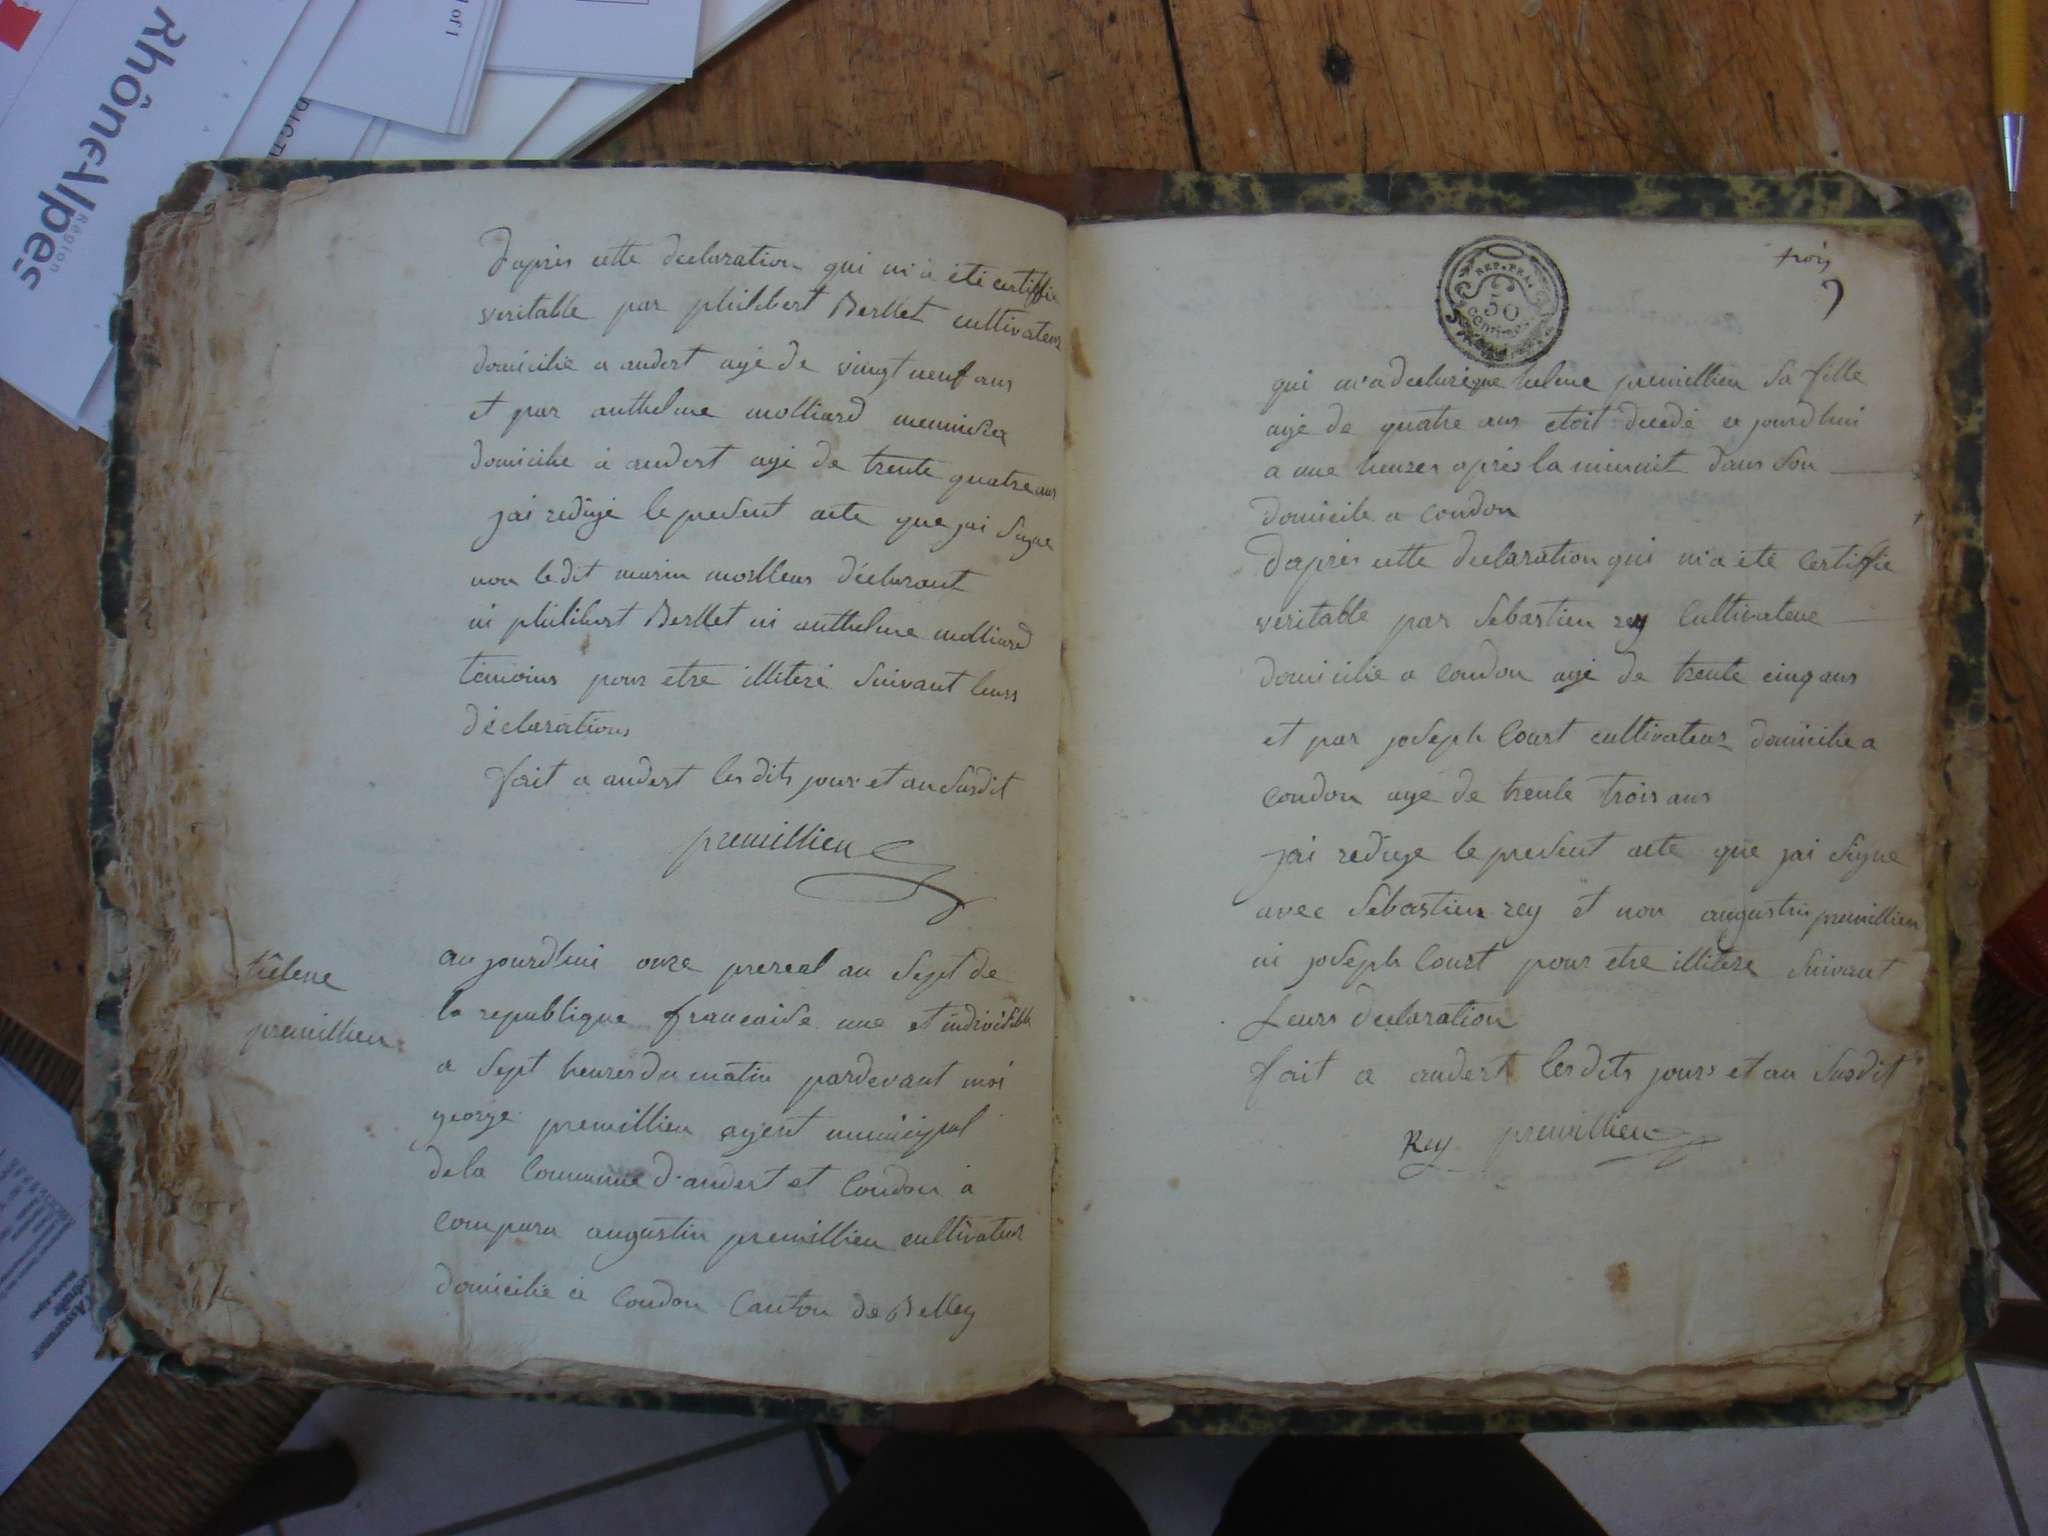 Rhône-Alpes
Région
1 of 1
D'après cette declaration qui m'a été certiffie
veritable par philibert Berllet cultivateur
domicilie a andert agé de vingt neuf ans
et par anthelme molliard menuisier
domicilie a andert agé de trente quatre ans
jai redigé le present acte que jai signe
non ledit marin déclarant
ni philibert Berllet ni anthelme molliard
témoins pour etre illiteré suivant leurs
déclarations
fait a andert lesdits jour et an susdit
premillieu
hélene
premillieu
aujourdhui onze prereal an sept de
la republique francaise une et indivisible
a sept heures du matin pardevant moi
george premillieu agent municipal
de la Commune d'andert et Condon à
compara augustin premillieu cultivateur
domicilié à Condon Canton de Belley
trois
REP. FRA.
50
centimes
qui m'a declaré que helene premillieu sa fille
agé de quatre ans etoit decedé ce jourdhui
a une heures après la minuit dans son
domicile a Condon
D'après cette declaration qui m'a été certiffie
veritable par sebastien rey Cultivateur
domicilié a Condon agé de trente cinq ans
et par joseph Court cultivateur domicilié a
Condon agé de trente trois ans
jai redige le present acte que jai signe
avec sebastien rey et non augustin premillieu
ni joseph Court pour etre illitere suivant
leurs declaration
fait a andert lesdits jours et an susdit
Rey premillieu